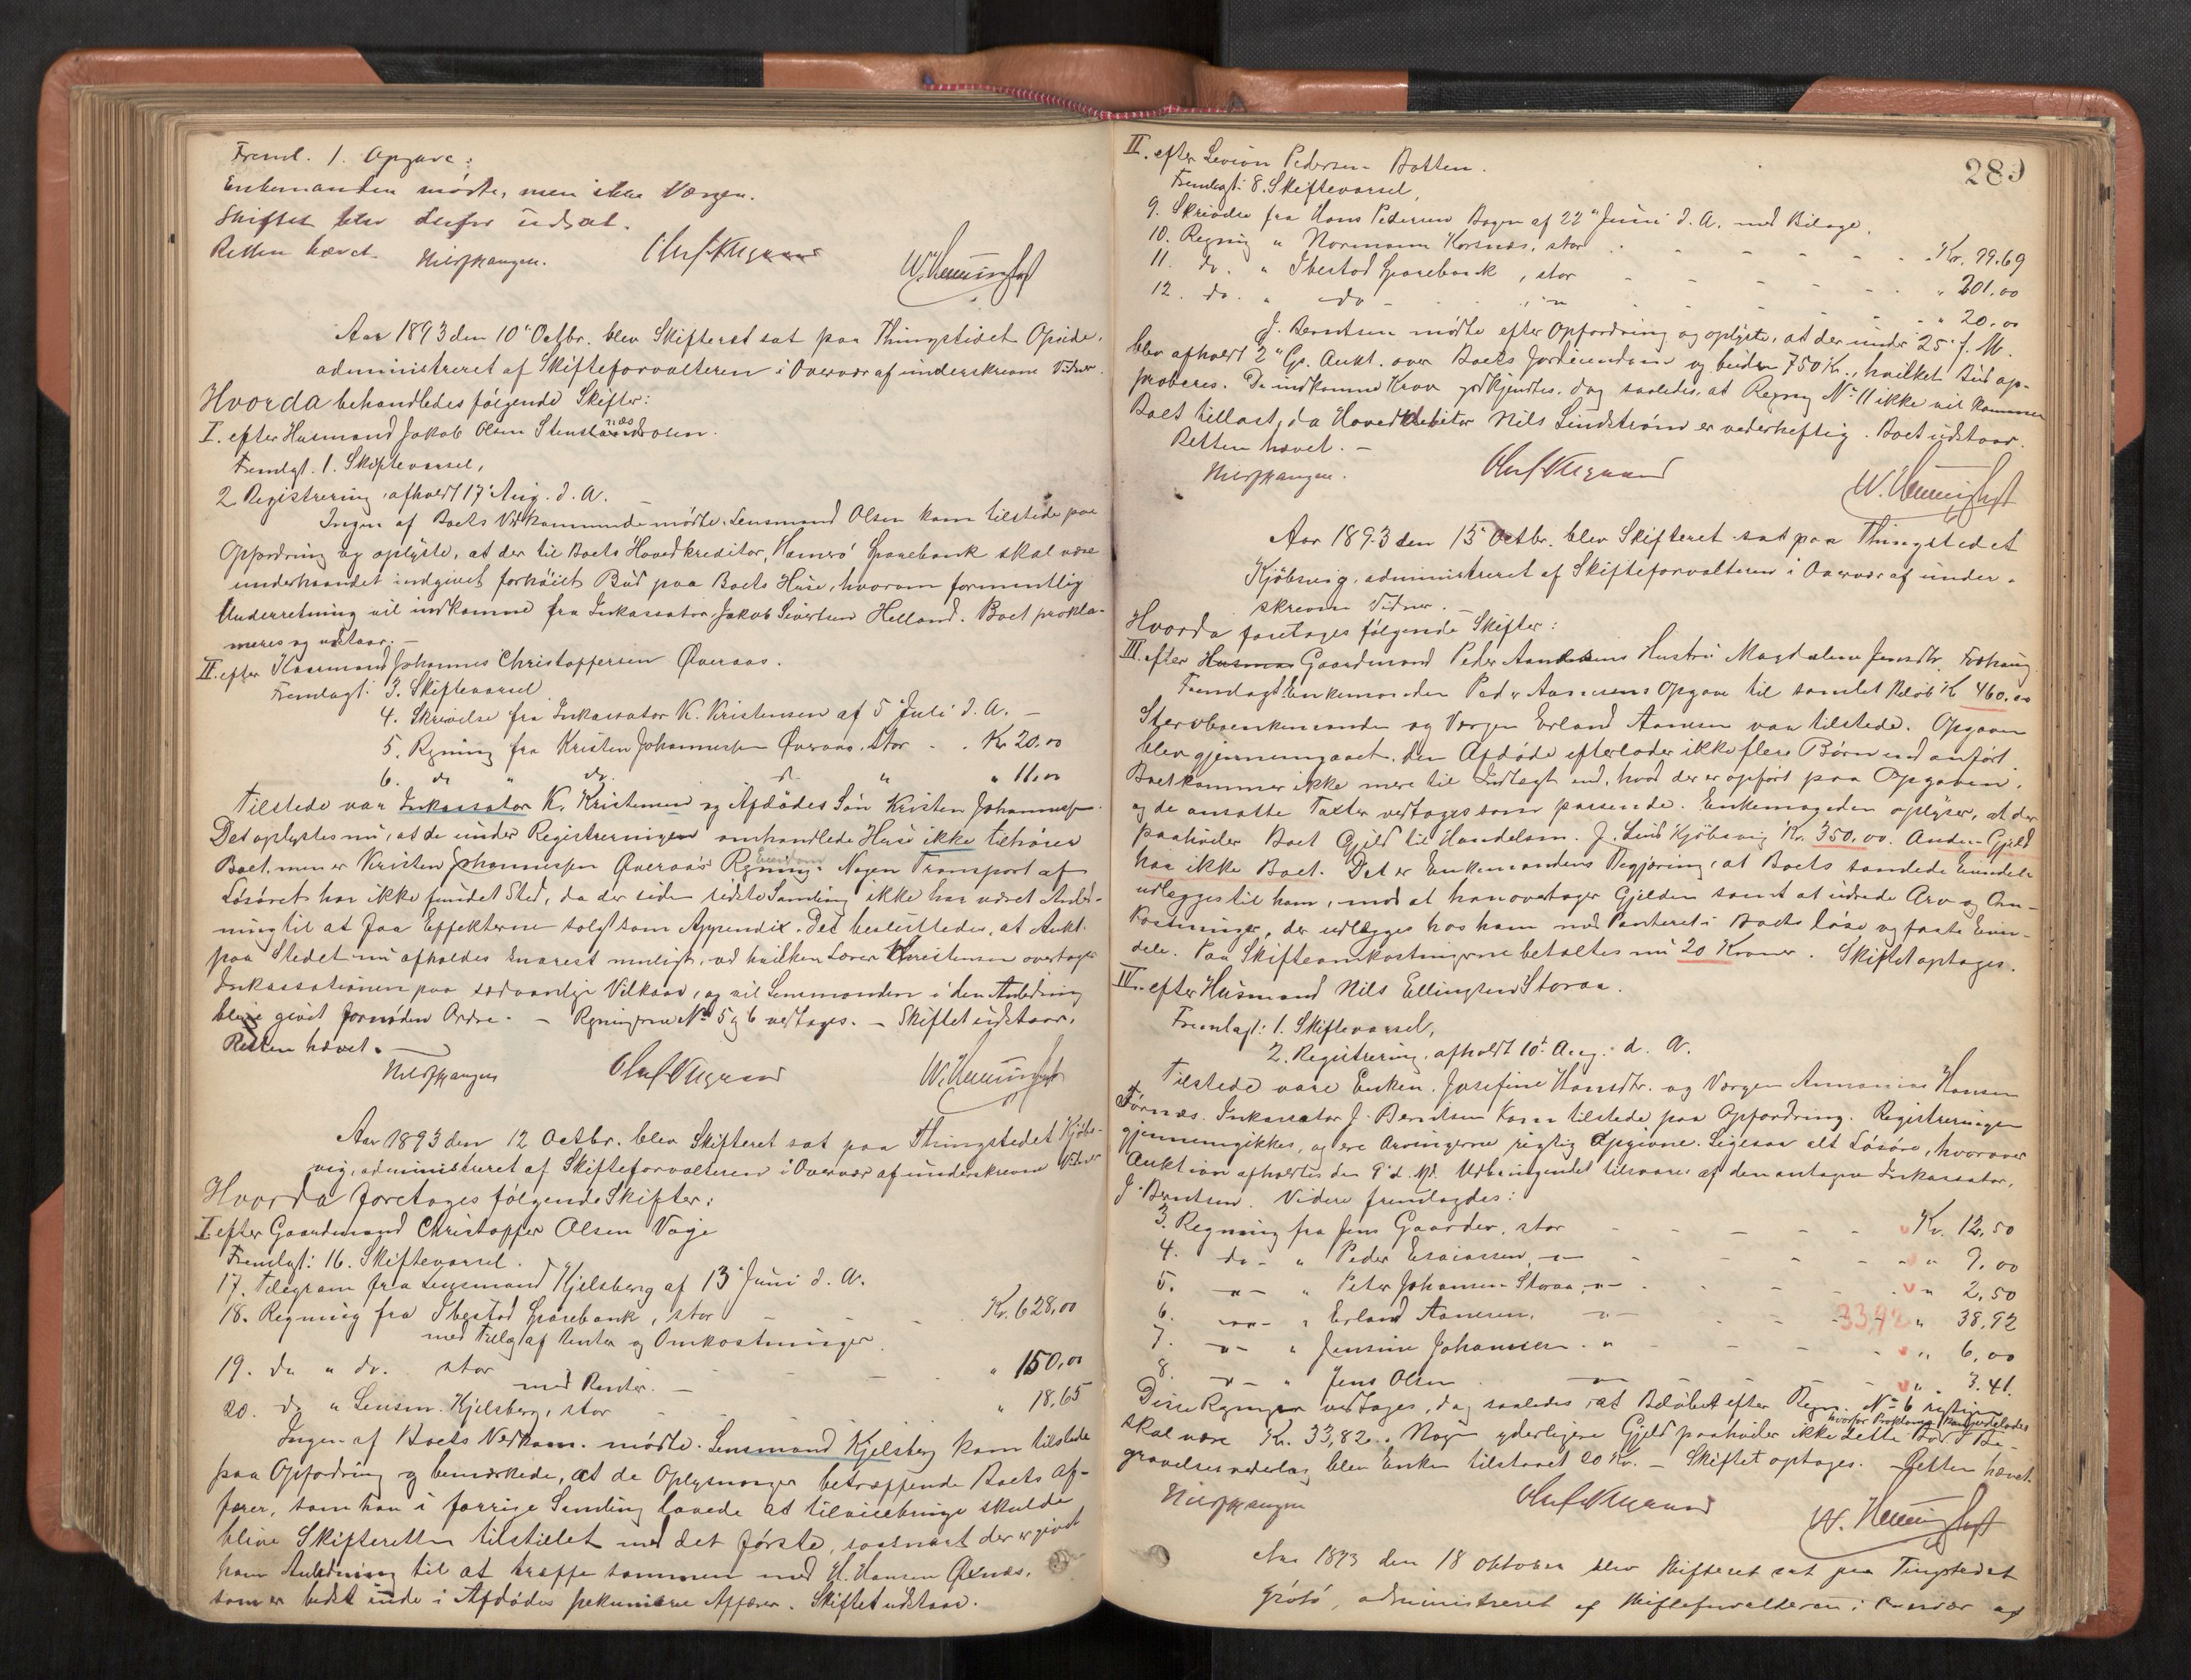 Freml. 1. Opgave:
Enkemanden mødte, men ikke Værgen.
Skiftet blev derfor udsat.
Retten hævet.
Aar 1893 den 10' Octbr. blev Skifteret sat paa Thingstedet Opeide,
administreret af Skifteforvalteren i Overvær af underskrevne Vidner.
Hvorda behandledes følgende Skifter:
I. efter Husmand Jakob Olsen
Fremlgt. 1. Skiftevarsel,
2 Registrering, afholdt 17' Aug. d. A.
Ingen af Boets Vedkommende mødte. Lensmand Olsen kom tilstede paa
Opfordring og oplyste, at der til Boets Hovedkreditor, Hamarø Sparebank skal være
underhaandet indgivet forhøiet Bud paa Boets Huse, hvorom formentlig
Underretning vil indkomme fra Inkassator Jakob Sivertsen Helland. Boet prokla-
meres og udstaar. —
II. efter Kaarmand Johannes Christoffersen Øveraas.
Fremlagt: 3. Skiftevarsel
4. Skrivelse fra Inkassator K. Kristensen af 5' Juli d. A. —
5. Regning fra Kristen Johannessen Øveraas, stor - . Kr. 20.00
6. do " do. d. " " 11.00
Tilstede var Inkassator K. Kristensen og Afdødes Søn Kristen Johannessen.
Det oplystes nu, at de under Registreringen omhandlede Huse ikke tilhører
Boet, men er Kristen Johannessen Øveraas's Eiendom. Nogen Transport af
Løsøret har ikke fundet Sted, da der siden sidste Samling ikke har været Anled-
ning til at faa Effekterne solgt som Appendix. Det besluttedes, at Aukt.
paa Stedet nu afholdes snarest muligt, ved hvilken Lærer Christensen overtager
Inkassationen paa sædvanlige Vilkaar, og vil Lensmanden i den Anledning
blive givet fornøden Ordre. — Regningerne No 5 og 6 vedtages. — Skiftet udstaar.
Retten hævet.
Aar 1893 den 12 Octbr. blev Skifteret sat paa Thingstedet Kjøbs-
vig, administreret af Skifteforvalteren i Overvær af underskrevne Vidner
Hvorda foretages følgende Skifter:
I. efter Gaardmand Christopher Olsen Vage
Fremlgt: 16. Skiftevarsel.
17. Telegram fra Lensmand Kjelsberg af 13' Juni d. A.
18. Regning fra Ibestad Sparebank, stor - - - Kr. 628,00
med Tillæg af Renter og Omkostninger.
19. do " do. stor - - - " 150,00
med Renter. —
20. do " Lensm. Kjelsberg, stor - - " 18,65
Ingen af Boets Vedkom. mødte. Lensmand Kjelsberg kom tilstede
paa Opfordring og bemærkede, at de Oplysninger betræffende Boets Af-
færer, som han i forrige Samling lovede at tilveiebringe skulde
blive Skifteretten tilstillet med det første, saasnart der er givet
ham Anledning til at træffe sammen med H. Hansen Øxnæs,
som er bedst inde i Afdødes pekuniære Affærer. Skiftet udstaar.
289
II. efter Sevion Pedersen Botten.
Fremlagt: 8. Skiftevarsel,
9. Skrivelse fra Hans Pedersen Bogen af 22" Juni d. A. med Bilage.
10. Regning " Normann Korsnæs, stor - - - Kr. 99.69
11. do. " Ibestad Sparebank, stor - - - " 201.00
12. do. " do - - " - - - " 20.00
J. Berntsen mødte efter Opfordring og oplyste, at der under 25' f. M.
blev afholdt 2" Gs. Aukt. over Boets Jordeiendom og buden 750 Kr., hvilket Bud ap-
proberes. De indkomne Krav godkjendtes, dog saaledes, at Regning No 11 ikke vil komme
Boet tillast, da Hoveddebitor Nils Lindstrøm er vederheftig. Boet udstaar.
Retten hævet. —
Aar 1893 den 15' Octbr. blev Skifteret sat paa Thingstedet
Kjøbsvig, administreret af Skifteforvalteren i Overvær af under-
skrevne Vidner. —
Hvorda foretages følgende Skifter:
III. efter Gaardmand Peder Aanesens Hustru Magdalena Jensdtr.
Fremlagt Enkemanden Peder Aanesens Opgave til samlet Beløb Kr 460.00
Stervboenkemanden og Værgen Erland Aanesen var tilstede. Opgaven
blev gjennemgaaet, den Afdøde efterlader ikke flere Børn end anført.
Boet kommer ikke mere til Indtægt end, hvad der er opført paa Opgaven,
og de ansatte Taxter vedtages som passende. Enkemanden oplyser, at der
paahviler Boet Gjeld til Handelsm. J. Lund Kjøbsvig Kr. 350.00. Anden Gjeld
har ikke Boet. Det er Enkemandens Begjæring, at Boets samlede Eiendele
udlægges til ham, mod at han overtager Gjelden samt at udrede Arv og Om-
kostninger, der udlægges hos ham med Panteret i Boets løse og faste Eien-
dele. Paa Skifteomkostningerne betaltes nu 20 Kroner. Skiftet optages.
IV. efter Husmand Nils Ellingsen Storaa.
Fremlagt: 1. Skiftevarsel,
2. Registrering, afholdt 10' Aug. d. A.
Tilstede vare Enken, Josefine Hansdtr. og Værgen Annanias Hansen
Fornæs. Inkassator J. Berntsen kom tilstede paa Opfordring. Registreringen
gjennemgikkes, og ere Arvingerne rigtig opgivne. Ligesaa alt Løsøre, hvorover
Auktion afholdtes den 9' d. Md. Udbringendet tilsvares af den antagne Inkassator,
J. Berntsen. Videre fremlagdes:
3. Regning fra Jens Gaarder, stor - - - Kr. 12,50
4. do - " Peder Esaiassen, -"- - - " 9.00
5. -"- " Peter Johansen Storaa, -"- - - " 2,50
6. -"- " Erland Aanesen, -"- - 33,92 " 38,92
7. -"- " Jensine Johannesen. " - - " 6,00
8. -"- " Jens Olsen -"- - " 3.41.
Disse Regninger vedtages, dog saaledes, at Beløbet efter Regn. No 6 rettelig
skal være Kr. 33,82. Nogen yderligere Gjeld paahviler ikke dette Bo, hvorfor Proklama kan undlades. Be-
gravelsesvederlag blev Enken tilstaaet 20 Kr. — Skiftet optages. — Retten hævet.
Aar 1893 den 18 oktober blev skifteret sat paa Tingstedet
Grøtø, administreret af skifteforvalteren i overvær af